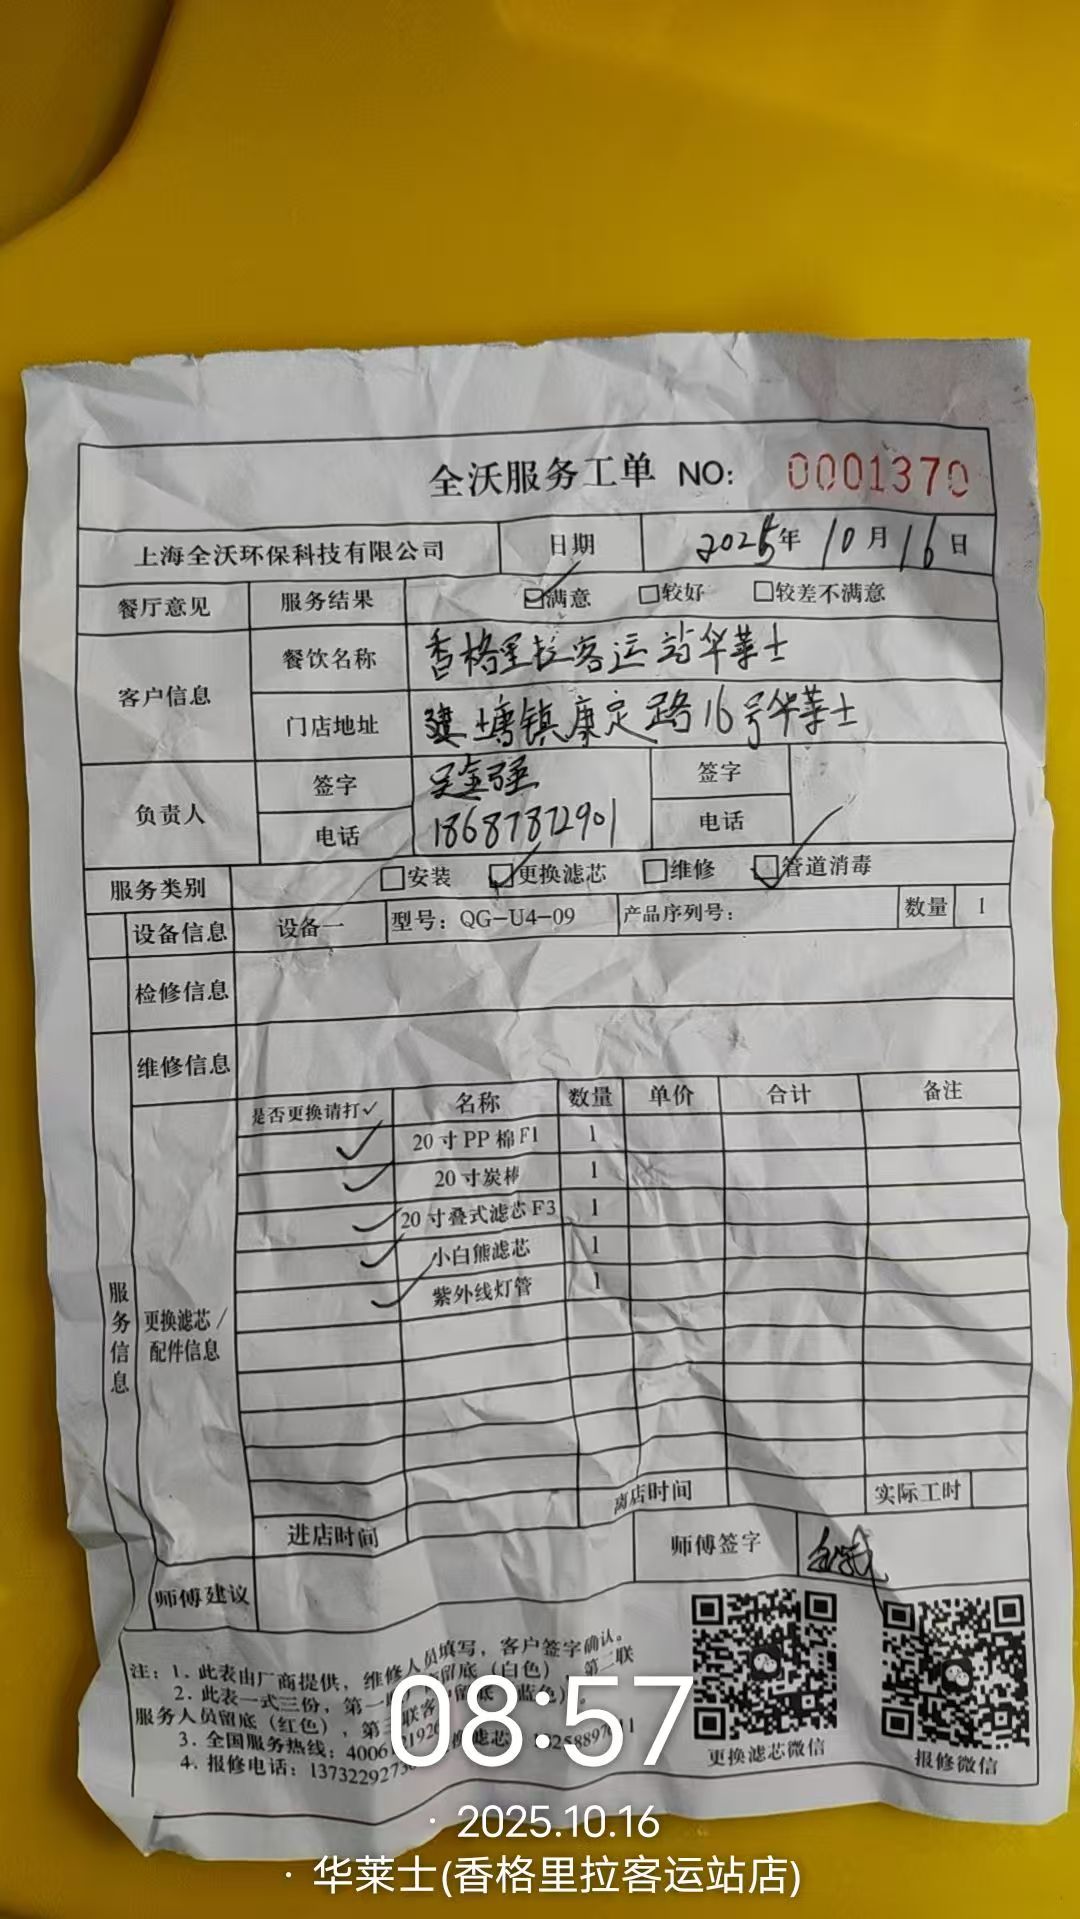 全沃服务工单 NO: 0001370
上海全沃环保科技有限公司 日期 2025年10月16日
餐厅意见 服务结果 ☑满意 □较好 □较差不满意
客户信息 餐饮名称 香格里拉客运站华莱士
门店地址 建塘镇康定路16号华莱士
负责人 签字 签字
电话 18687872901 电话
服务类别 □安装 ☑更换滤芯 □维修 ☑管道消毒
设备信息 设备一 型号: QG-U4-09 产品序列号: 数量 1
检修信息
维修信息
服务信息
更换滤芯/
配件信息
是否更换请打✓ 名称 数量 单价 合计 备注
✓ 20寸PP棉F1 1
✓ 20寸炭棒 1
✓ 20寸叠式滤芯F3 1
✓ 小白熊滤芯 1
✓ 紫外线灯管 1
进店时间 离店时间 实际工时
师傅建议 师傅签字
注: 1. 此表由厂商提供, 维修人员填写, 客户签字确认。
2. 此表一式三份, 第一 留底(白色), 第二联
服务人员留底(红色), 第三联客 留底(蓝色)。
3. 全国服务热线: 4006
4. 报修电话: 1373229273
更换滤芯微信 报修微信
08:57
· 2025.10.16
· 华莱士(香格里拉客运站店)